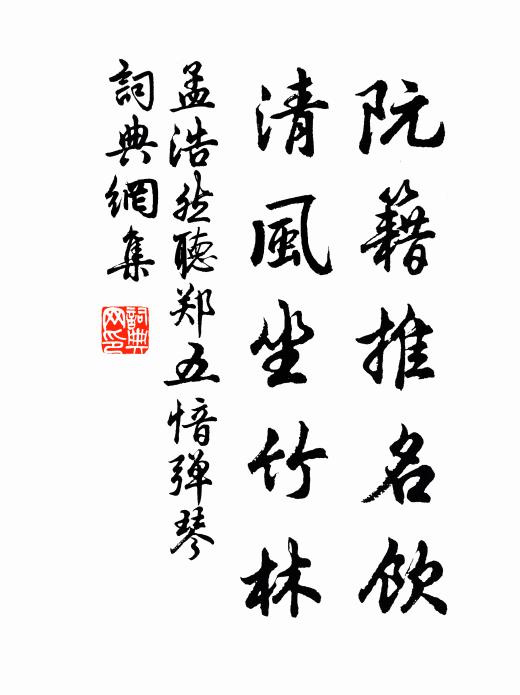 阮籍推名飲
清風坐竹林
孟浩然聽郑五愔弹琴
詞典網集
詞典网印